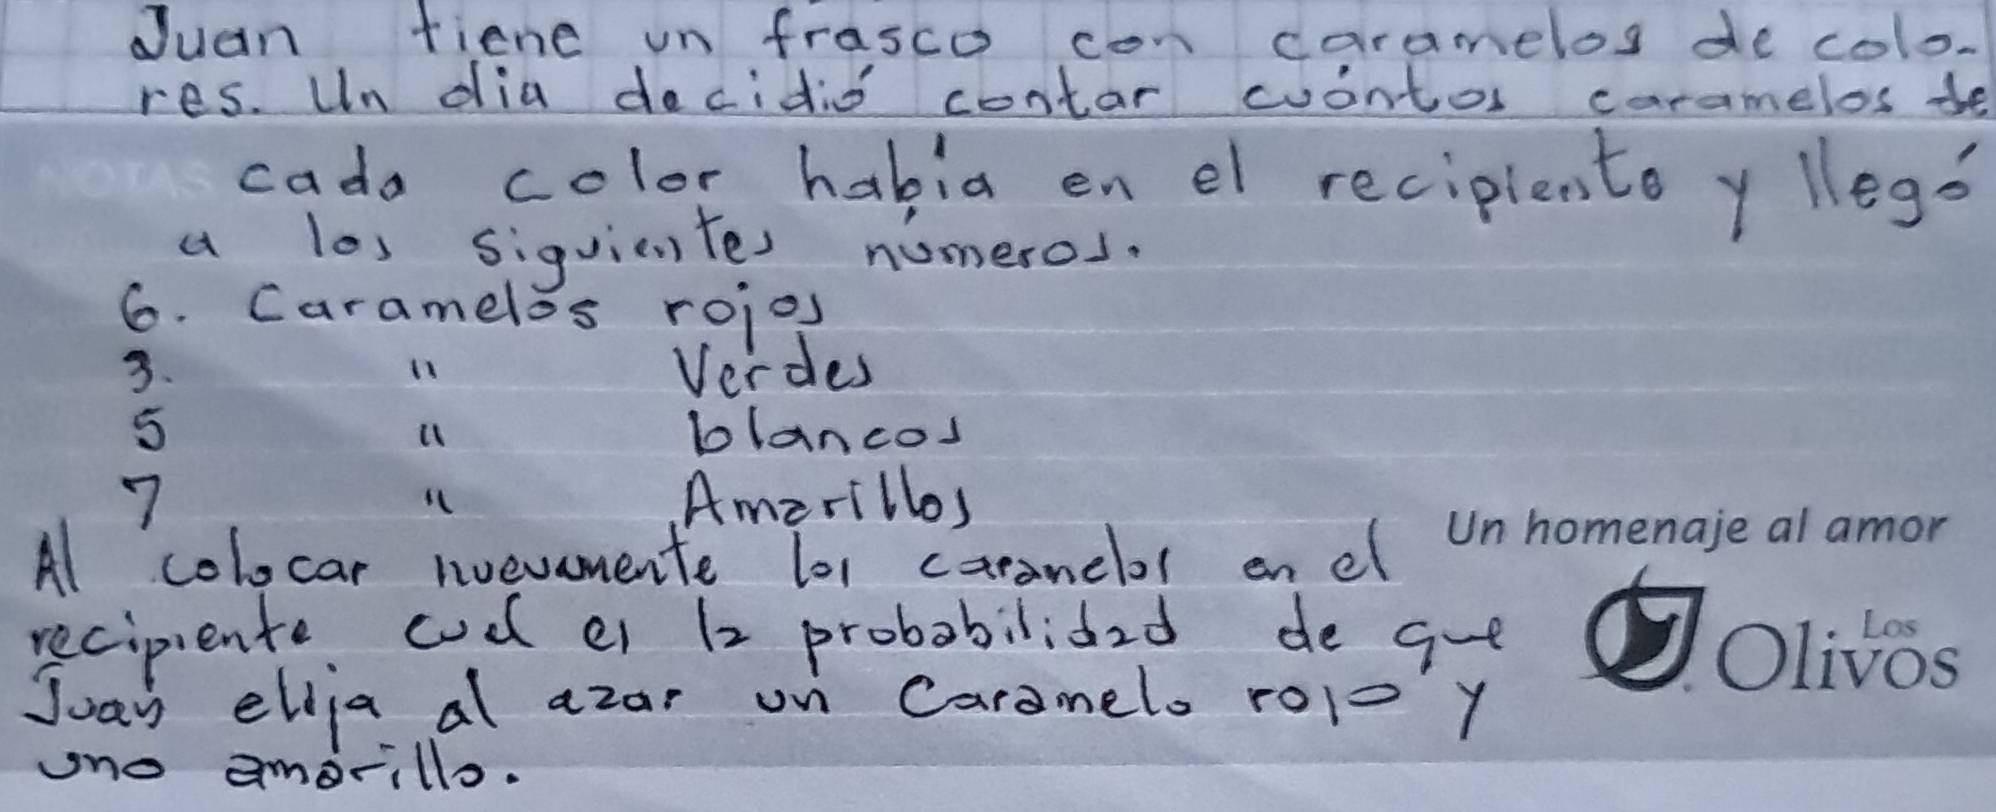 Juan tiene un frasco con caramelos de colo-
res. Un día decidió contar cuántos caramelos de
NOTAS
cada color había en el recipiente y llegó
a los siguientes números.
6. Caramelos rojos
3. " Verdes
5 " blancos
7 " Amarillos
Al colocar nuevamente los caramelos en el
recipiente cual es la probabilidad de que
Juan elija al azar un Caramelo rojo y
uno amarillo.
Un homenaje al amor
Los
Olivos